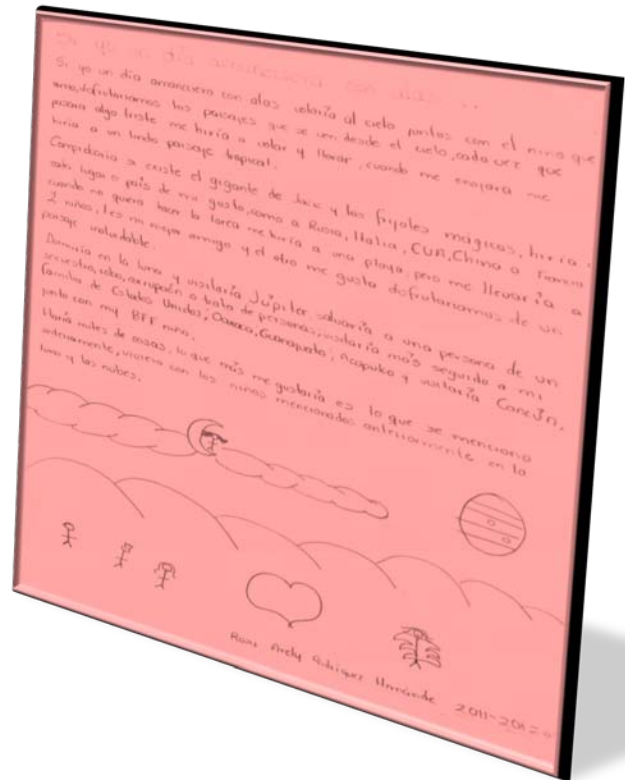 Si yo un día amaneciera con alas ...
Si yo un día amaneciera con alas volaría al cielo juntos con el niño que
amo, disfrutaríamos los paisajes que se ven desde el cielo, cada vez que
pasara algo triste me hiria a volar y llorar, cuando me enojara me
hiria a un lindo paisaje tropical.
existe el gigante de y los frijoles mágicos, hiria
cada lugar o país de mi gusto, como a Rusia, Italia, CUA, China o Francia
cuando no quiera hacer la tarea me hiria a una playa, pero me llevaría a
2 niños, 1 es mi mejor amigo y el otro me gusta disfrutaríamos de un
paisaje inolvidable.
Dormiría en la luna y visitaría Júpiter, salvaría a una persona de un
secuestro, robo, o trata de personas, visitaría más seguido a mi
familia de Estados Unidos, Oaxaca, Guanajuato, Acapulco y visitaría Cancún,
junto con my BFF niño.
Haría miles de cosas, lo que más me gustaría es lo que se menciona
anteriormente, viviera con los niños mencionados anteriormente en la
luna y las nubes.
Arely Rodríguez Hernández 2011-201